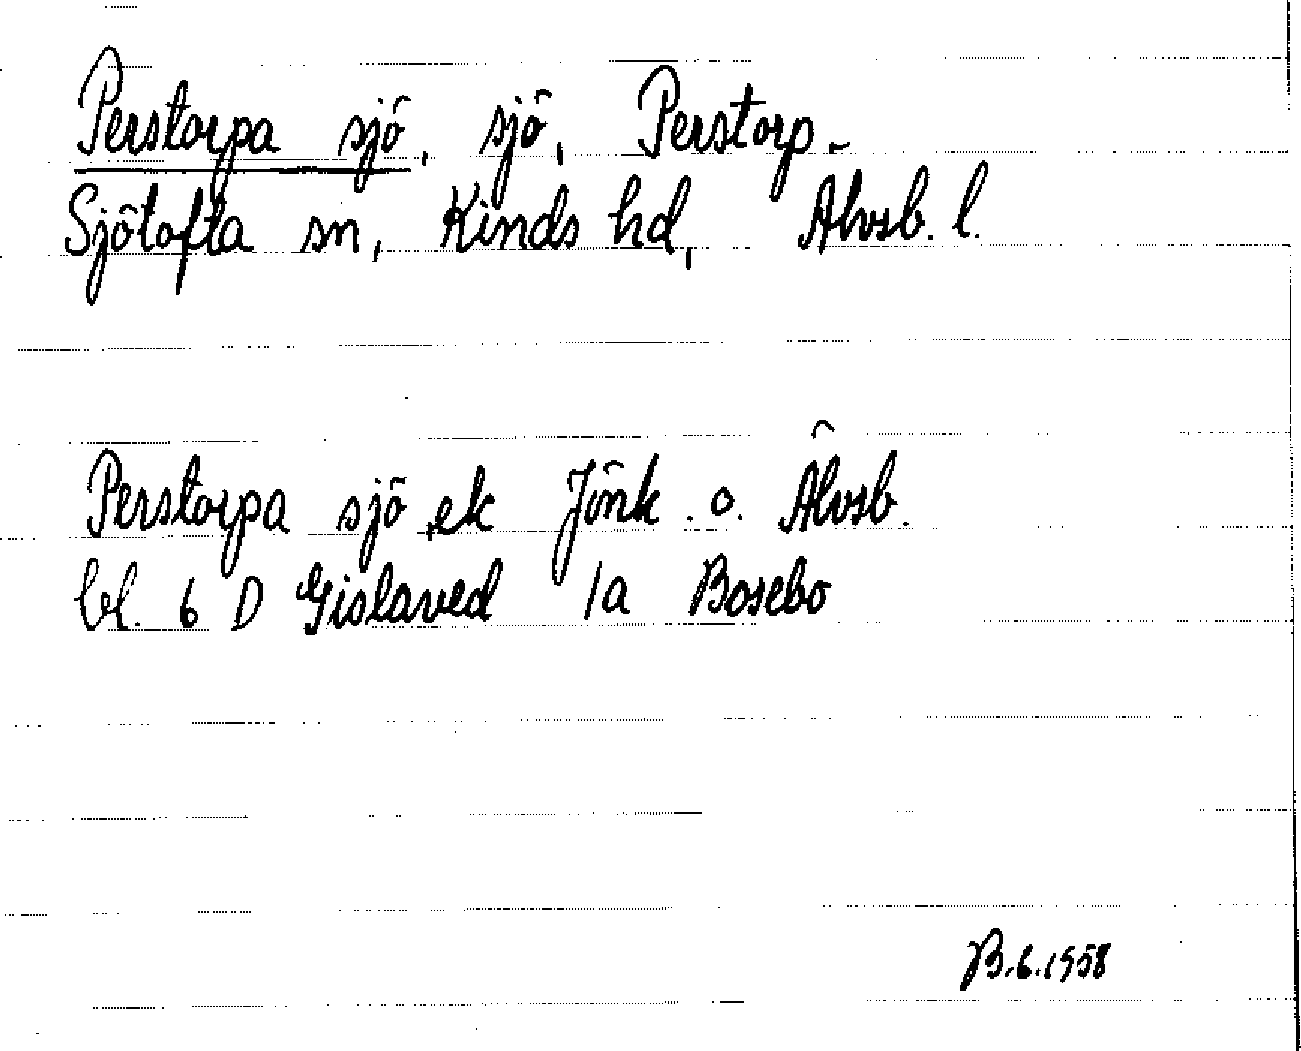 Perstorpa sjö, sjö, Perstorp.
Sjötofta sn, Kinds hd, Älvsb. l.
Perstorpa sjö, ek Jönk. o. Älvsb.
bl. 6 D Gislaved 1a Bosebo
B.G. 1958